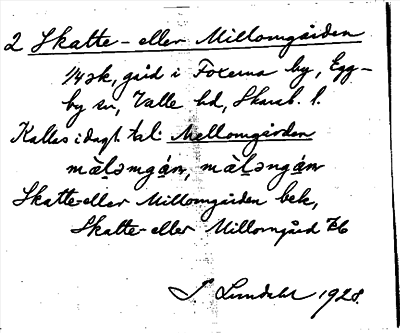 2 Skatte- eller Millomgården
1/4 sk, gård i Foxerna by, Egg-
by sn, Valle hd, Skarab. l.
Kallas i dagl. tal: Mellomgården
mäl̥əmgán, mäl̥əngán
Skatte- eller Millomgården bek,
Skatte- eller Millomgård
S. Lundahl 1928.